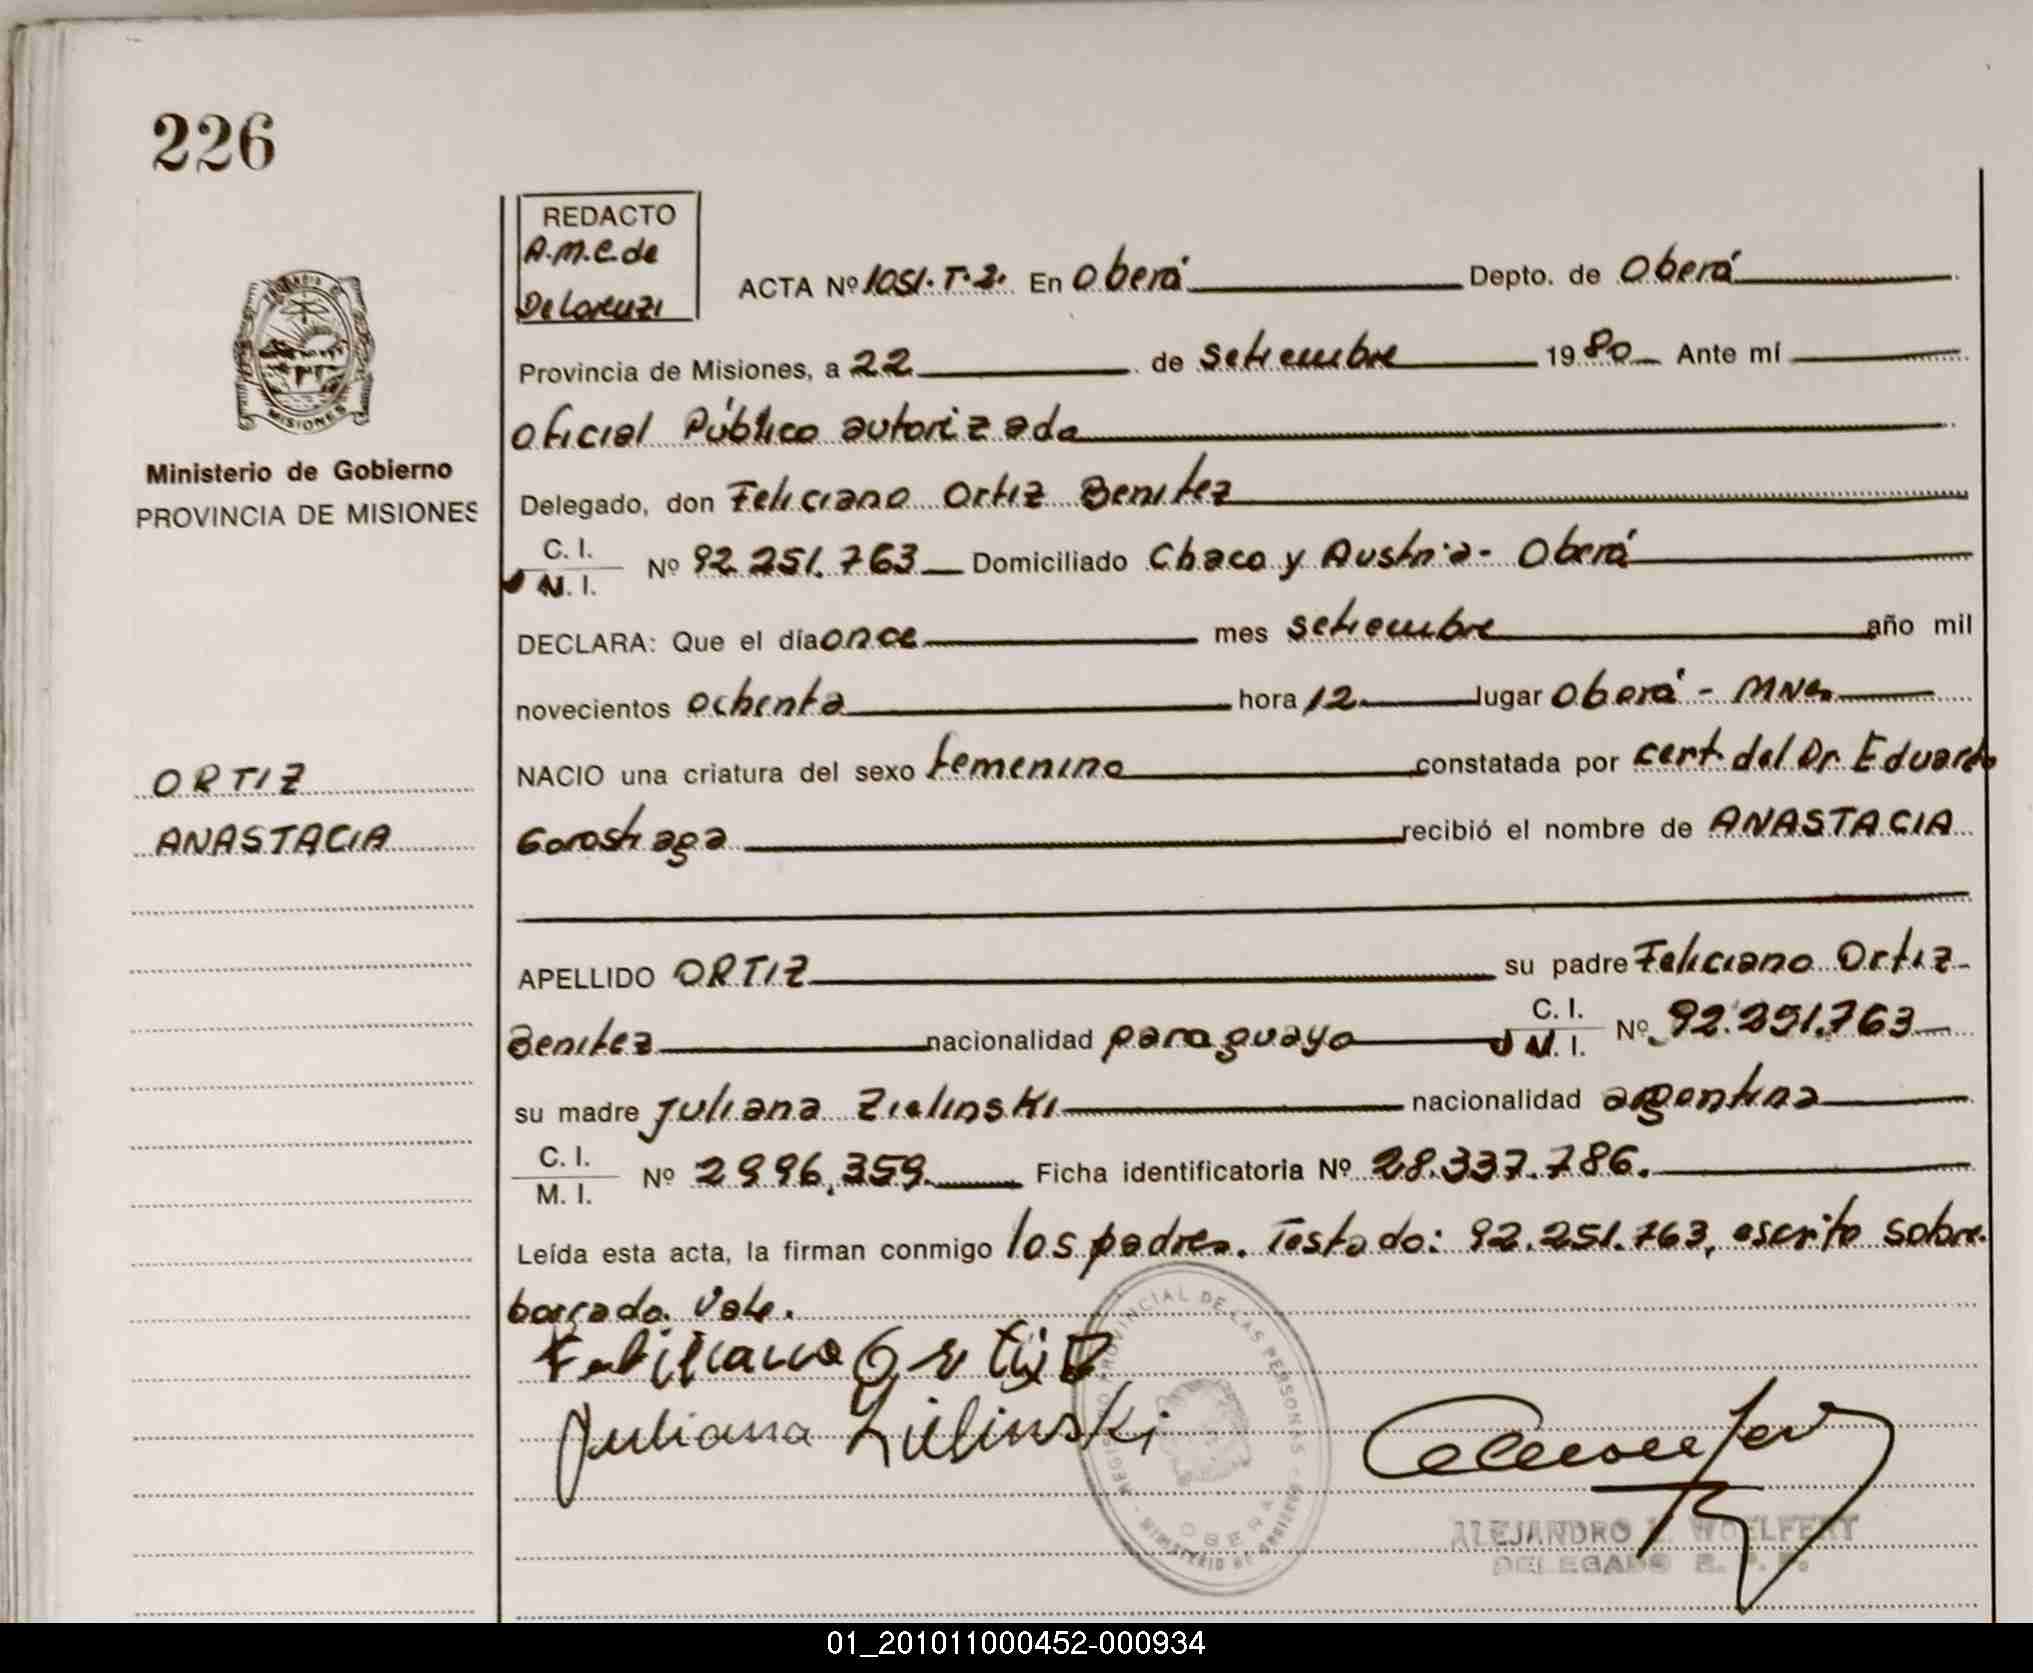 226
REDACTO
A.M.C. de
De Lorenzi
ACTA Nº 1051.T.2. En Oberá Depto. de Oberá
Provincia de Misiones, a 22 de setiembre 1980 Ante mí
Oficial Público autorizada
Ministerio de Gobierno
PROVINCIA DE MISIONES
Delegado, don Feliciano Ortiz Benitez
C. I.
M. I. Nº 92.251.763 Domiciliado Chaco y Austria - Oberá
DECLARA: Que el día once mes setiembre año mil
novecientos ochenta hora 12 lugar Oberá - Mnes
ORTIZ
ANASTACIA
NACIO una criatura del sexo femenino constatada por cert. del Dr. Eduardo
Gorostiaga recibió el nombre de ANASTACIA
APELLIDO ORTIZ su padre Feliciano Ortiz
Benitez nacionalidad paraguayo C. I.
M. I. Nº 92.251.763
su madre Juliana Zielinski nacionalidad argentina
C. I.
M. I. Nº 2996.359. Ficha identificatoria Nº 28.337.786.
Leída esta acta, la firman conmigo los padres. Testado: 92.251.763, escrito sobre
borrado. Vale.
Feliciano Ortiz
Juliana Zielinski
REGISTRO PROVINCIAL DE LAS PERSONAS
OBERA
MINISTERIO DE GOBIERNO
ALEJANDRO WOELFERT
DELEGADO R. P. P.
MISIONES
01_201011000452-000934